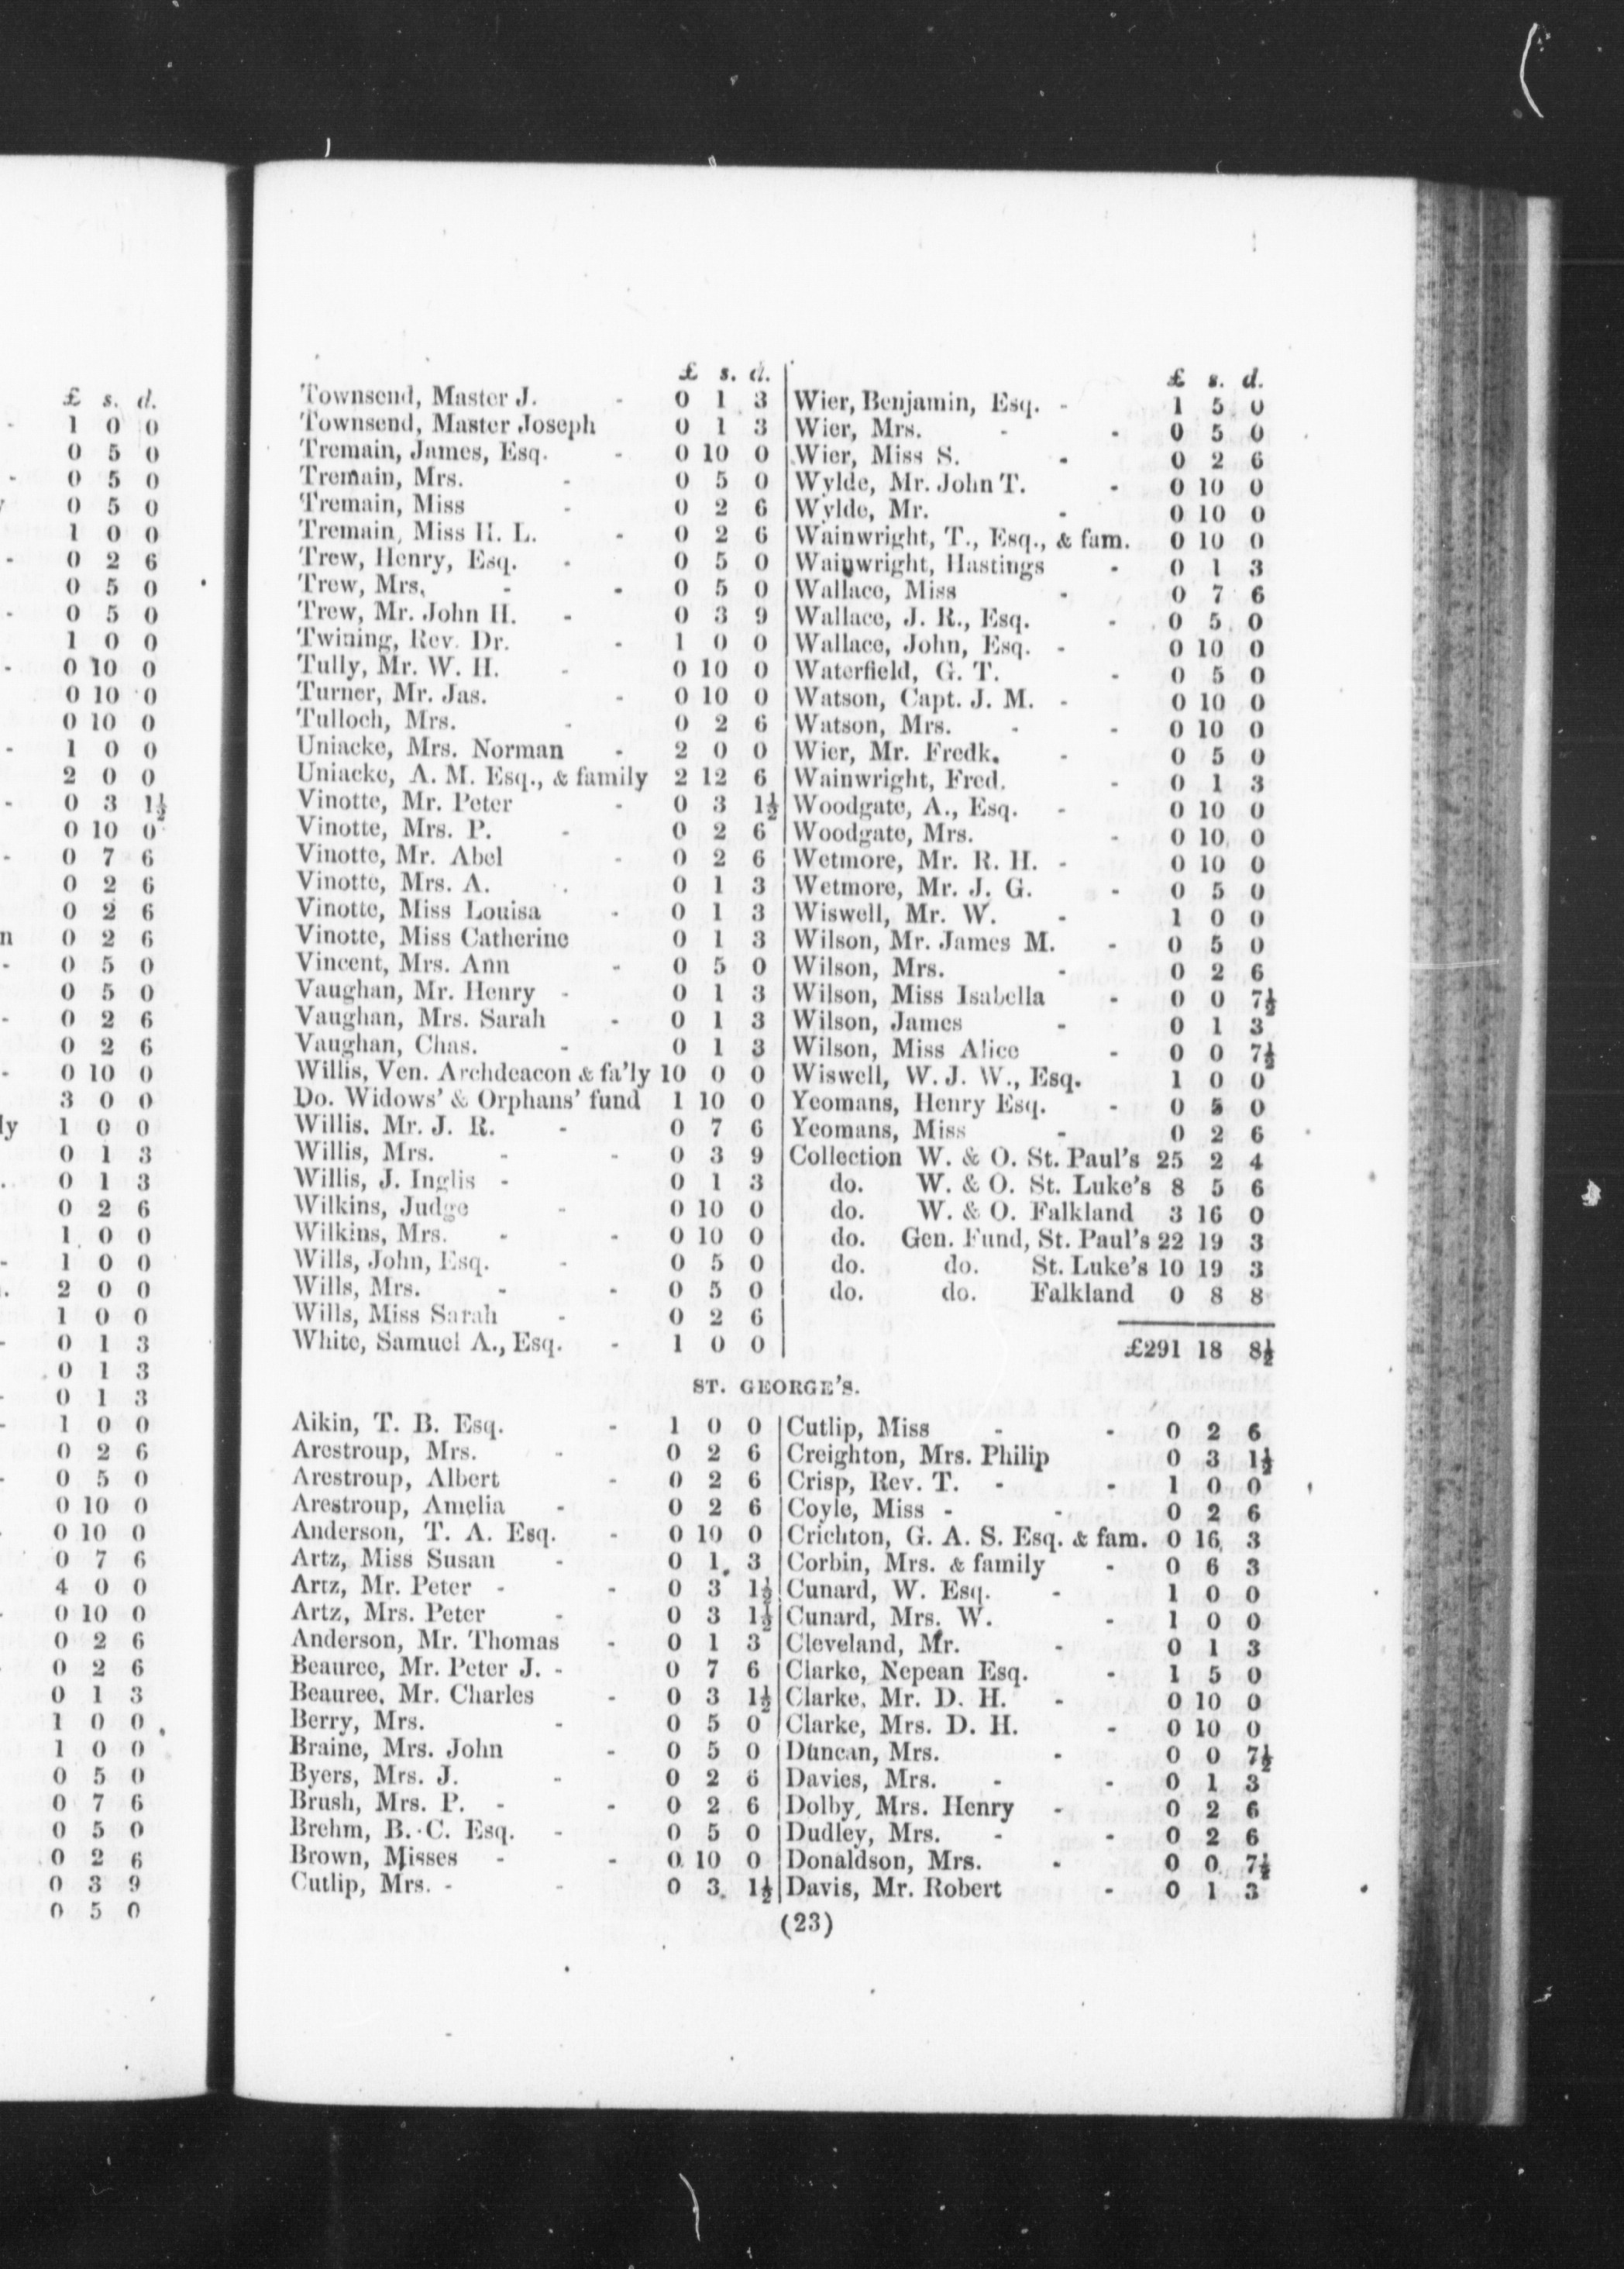 £ s. d.
1 0 0
0 5 0
0 5 0
0 5 0
1 0 0
0 2 6
0 5 0
0 5 0
1 0 0
0 10 0
0 10 0
0 10 0
1 0 0
2 0 0
0 3 1½
0 10 0
0 7 6
0 2 6
0 2 6
0 2 6
0 5 0
0 5 0
0 2 6
0 2 6
0 10 0
3 0 0
1 0 0
0 1 3
0 1 3
0 2 6
1 0 0
1 0 0
2 0 0
1 0 0
0 1 3
0 1 3
0 1 3
1 0 0
0 2 6
0 5 0
0 10 0
0 10 0
0 7 6
4 0 0
0 10 0
0 2 6
0 2 6
0 1 3
1 0 0
1 0 0
0 5 0
0 7 6
0 5 0
0 2 6
0 3 9
0 5 0
£ s. d.
Townsend, Master J. - 0 1 3
Townsend, Master Joseph 0 1 3
Tremain, James, Esq. - 0 10 0
Tremain, Mrs. - 0 5 0
Tremain, Miss - 0 2 6
Tremain, Miss H. L. - 0 2 6
Trew, Henry, Esq. - 0 5 0
Trew, Mrs. - - 0 5 0
Trew, Mr. John H. - 0 3 9
Twining, Rev. Dr. - 1 0 0
Tully, Mr. W. H. - 0 10 0
Turner, Mr. Jas. - 0 10 0
Tulloch, Mrs. - 0 2 6
Uniacke, Mrs. Norman - 2 0 0
Uniacke, A. M. Esq., & family 2 12 6
Vinotte, Mr. Peter - 0 3 1½
Vinotte, Mrs. P. - 0 2 6
Vinotte, Mr. Abel - 0 2 6
Vinotte, Mrs. A. - 0 1 3
Vinotte, Miss Louisa - 0 1 3
Vinotte, Miss Catherine 0 1 3
Vincent, Mrs. Ann - 0 5 0
Vaughan, Mr. Henry - 0 1 3
Vaughan, Mrs. Sarah - 0 1 3
Vaughan, Chas. - 0 1 3
Willis, Ven. Archdeacon & fa'ly 10 0 0
Do. Widows' & Orphans' fund 1 10 0
Willis, Mr. J. R. - 0 7 6
Willis, Mrs. - - 0 3 9
Willis, J. Inglis - 0 1 3
Wilkins, Judge - 0 10 0
Wilkins, Mrs. - - 0 10 0
Wills, John, Esq. - 0 5 0
Wills, Mrs. - - 0 5 0
Wills, Miss Sarah - 0 2 6
White, Samuel A., Esq. - 1 0 0
£ s. d.
Wier, Benjamin, Esq. - 1 5 0
Wier, Mrs. - - 0 5 0
Wier, Miss S. - 0 2 6
Wylde, Mr. John T. - 0 10 0
Wylde, Mr. - 0 10 0
Wainwright, T., Esq., & fam. 0 10 0
Wainwright, Hastings - 0 1 3
Wallace, Miss - 0 7 6
Wallace, J. R., Esq. - 0 5 0
Wallace, John, Esq. - 0 10 0
Waterfield, G. T. - 0 5 0
Watson, Capt. J. M. - 0 10 0
Watson, Mrs. - - 0 10 0
Wier, Mr. Fredk. - 0 5 0
Wainwright, Fred. - 0 1 3
Woodgate, A., Esq. - 0 10 0
Woodgate, Mrs. - 0 10 0
Wetmore, Mr. R. H. - 0 10 0
Wetmore, Mr. J. G. - 0 5 0
Wiswell, Mr. W. - 1 0 0
Wilson, Mr. James M. - 0 5 0
Wilson, Mrs. - 0 2 6
Wilson, Miss Isabella - 0 0 7½
Wilson, James - 0 1 3
Wilson, Miss Alice - 0 0 7½
Wiswell, W. J. W., Esq. 1 0 0
Yeomans, Henry Esq. - 0 5 0
Yeomans, Miss - 0 2 6
Collection W. & O. St. Paul's 25 2 4
do. W. & O. St. Luke's 8 5 6
do. W. & O. Falkland 3 16 0
do. Gen. Fund, St. Paul's 22 19 3
do. do. St. Luke's 10 19 3
do. do. Falkland 0 8 8
£291 18 8½
ST. GEORGE'S.
Aikin, T. B. Esq. - 1 0 0
Arestroup, Mrs. - 0 2 6
Arestroup, Albert - 0 2 6
Arestroup, Amelia - 0 2 6
Anderson, T. A. Esq. - 0 10 0
Artz, Miss Susan - 0 1 3
Artz, Mr. Peter - - 0 3 1½
Artz, Mrs. Peter - 0 3 1½
Anderson, Mr. Thomas - 0 1 3
Beauree, Mr. Peter J. - 0 7 6
Beauree, Mr. Charles - 0 3 1½
Berry, Mrs. - 0 5 0
Braine, Mrs. John - 0 5 0
Byers, Mrs. J. - 0 2 6
Brush, Mrs. P. - - 0 2 6
Brehm, B. C. Esq. - 0 5 0
Brown, Misses - - 0 10 0
Cutlip, Mrs. - - 0 3 1½
Cutlip, Miss - - 0 2 6
Creighton, Mrs. Philip 0 3 1½
Crisp, Rev. T. - - 1 0 0
Coyle, Miss - - 0 2 6
Crichton, G. A. S. Esq. & fam. 0 16 3
Corbin, Mrs. & family - 0 6 3
Cunard, W. Esq. - 1 0 0
Cunard, Mrs. W. - 1 0 0
Cleveland, Mr. - 0 1 3
Clarke, Nepean Esq. - 1 5 0
Clarke, Mr. D. H. - 0 10 0
Clarke, Mrs. D. H. - 0 10 0
Duncan, Mrs. - 0 0 7½
Davies, Mrs. - - 0 1 3
Dolby, Mrs. Henry - 0 2 6
Dudley, Mrs. - - 0 2 6
Donaldson, Mrs. - 0 0 7½
Davis, Mr. Robert - 0 1 3
(23)